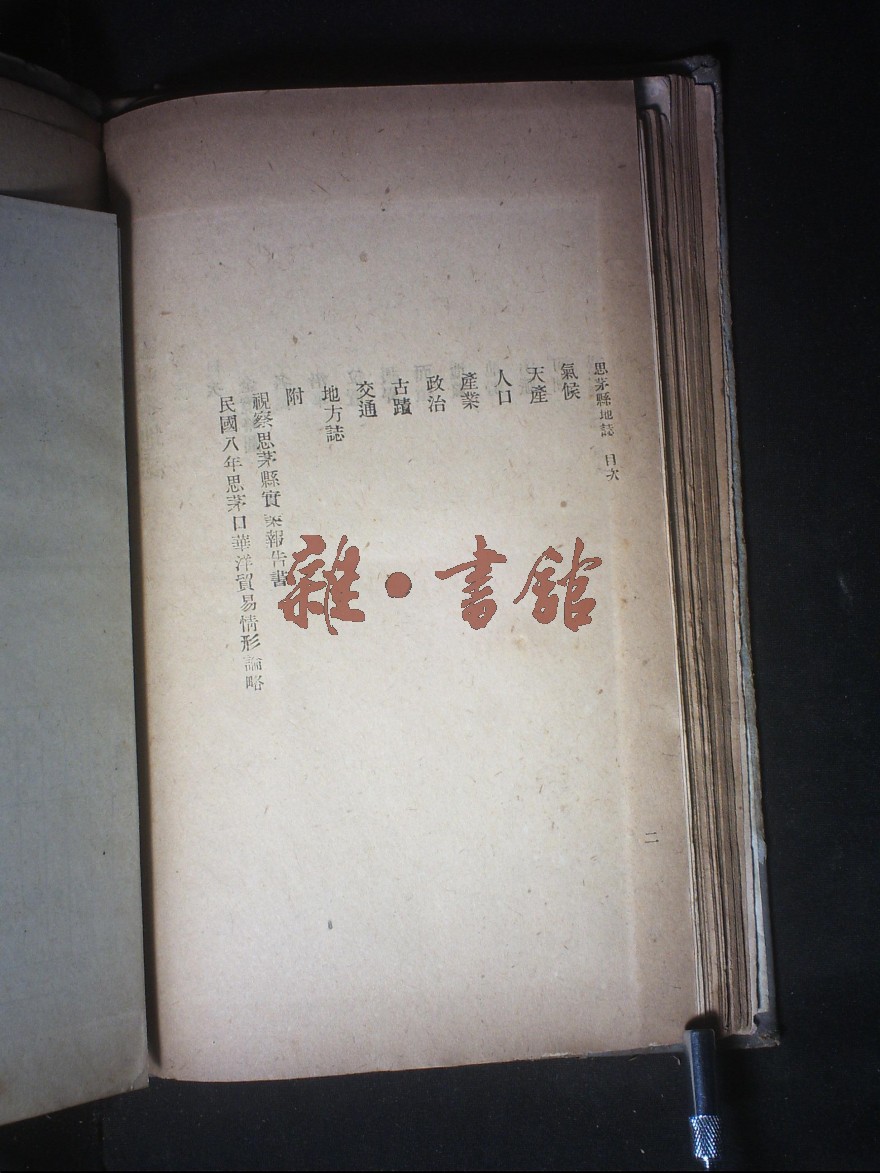 思茅縣地誌 目次
氣候
天產
人口
產業
政治
古蹟
交通
地方誌
附
視察思茅縣實業報告書
民國八年思茅口華洋貿易情形論略
二
雜·書館